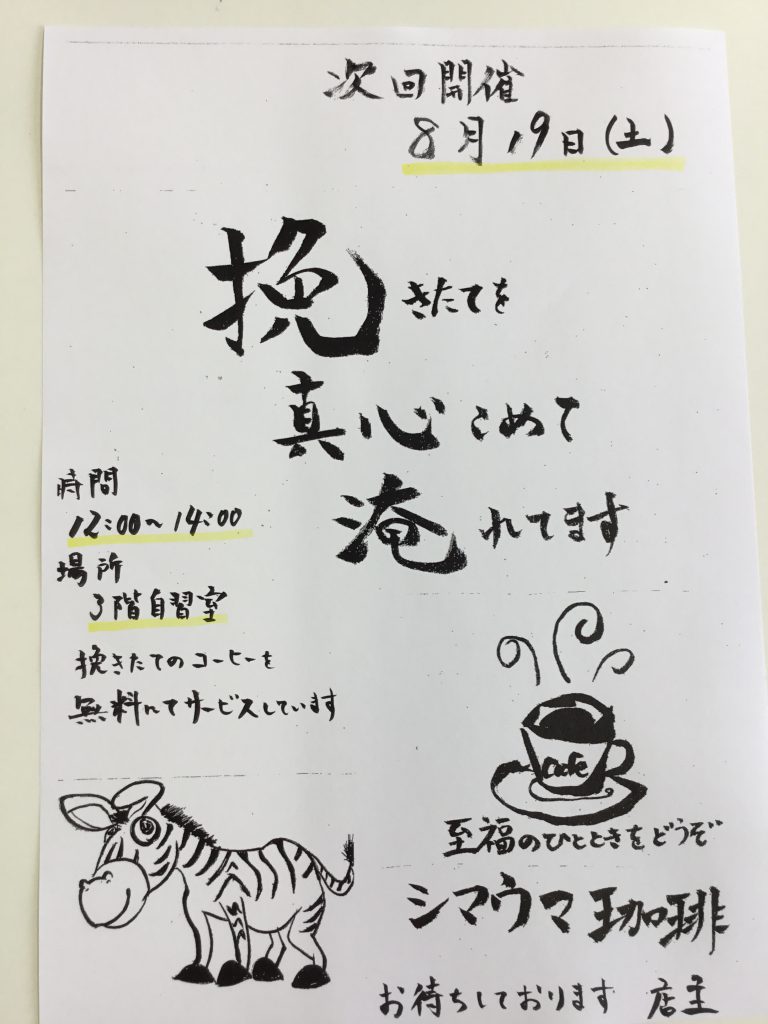 次回開催
8月19日(土)
挽きたてを
真心こめて
淹れてます
時間
12:00~14:00
場所
3階自習室
挽きたてのコーヒーを
無料にてサービスしています
Cafe
至福のひとときをどうぞ
シマウマ珈琲
お待ちしております 店主